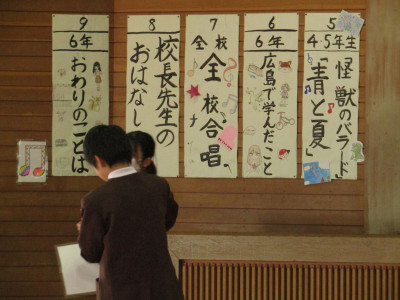 5
4 5年生
怪獣のバラード」
「青と夏」
6
6年
広島で学んだこと
7
全校
全校合唱
8
校長先生の
おはなし
9
6年
おわりのことば